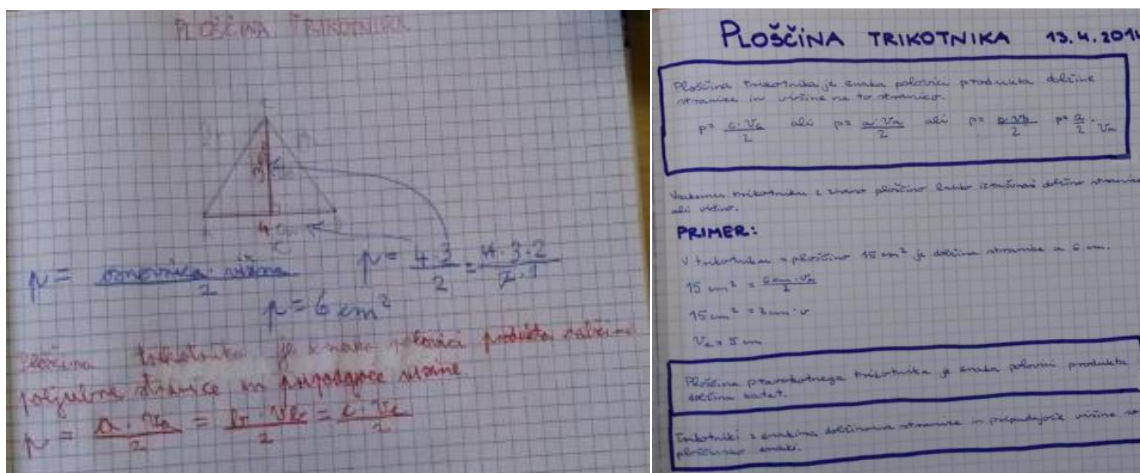 PLOŠČINA TRIKOTNIKA
3
4
p = osnovnica · višina / 2
p = 4 · 3 / 2 = 4 · 3 · 2 / 2 · 1
p = 6 cm²
ploščina trikotnika je enaka polovici produkta dolžine
poljubne stranice in pripadajoče višine
p = a · va / 2 = b · vb / 2 = c · vc / 2
PLOŠČINA TRIKOTNIKA 13.4.201
Ploščina trikotnika je enaka polovici produkta dolžine
stranice in višine na to stranico.
p = c · vc / 2 ali p = a · va / 2 ali p = b · vb / 2 p = a / 2 · va
trikotniku z znano ploščino lahko izračunaš dolžino stranice
ali višino.
PRIMER:
V trikotniku s ploščino 15 cm² je dolžina stranice a 6 cm.
15 cm² = 6 cm · va / 2
15 cm² = 3 cm · v
va = 5 cm
Ploščina pravokotnega trikotnika je enaka polovici produkta
dolžin katet.
Trikotniki z enakima dolžinama stranice in pripadajoče višine so
ploščinsko enaki.